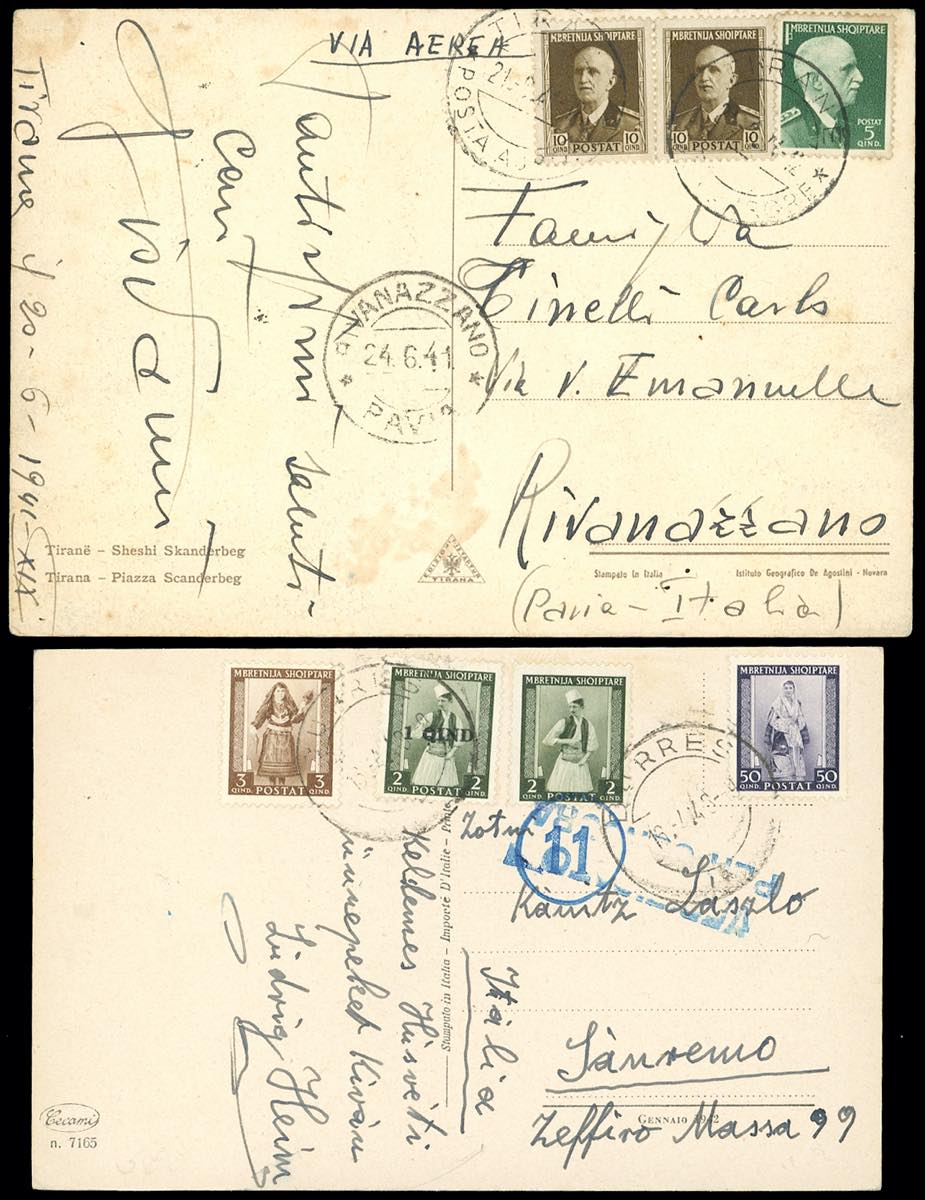 VIA AEREA
MBRETNIJA SHQIPTARE
10 QIND. POSTAT 10 QIND.
MBRETNIJA SHQIPTARE
10 QIND. POSTAT 10 QIND.
MBRETNIJA SHQIPTARE
POSTAT
5
QIND.
POSTA
Tirana
20-6-1941-XIX
Cari
saluti
RIVANAZZANO
24.6.41
PAVIA
Famiglia
Cinelli Carlo
Via V. Emanuele
Rivanazzano
(Pavia - Italia)
Tiranë - Sheshi Skanderbeg
Tirana - Piazza Scanderbeg
TIRANA
Stampato in Italia
Istituto Geografico De Agostini - Novara
MBRETNIJA SHQIPTARE
3 QIND. POSTAT 3 QIND.
MBRETNIJA SHQIPTARE
1 QIND.
2 QIND. POSTAT 2 QIND.
MBRETNIJA SHQIPTARE
2 QIND. POSTAT 2 QIND.
MBRETNIJA SHQIPTARE
50 QIND. POSTAT 50 QIND.
DURRES
DURRES
11
Zotni
Kanitz Laszlo
Itália
Sanremo
Zeffiro Massa 99
Kellemes Húsveti
ünnepeket Kíván
Ludvig Heim
Stampato in Italia - Importé D'Italie -
GENNAIO 1942
Cecami
n. 7165